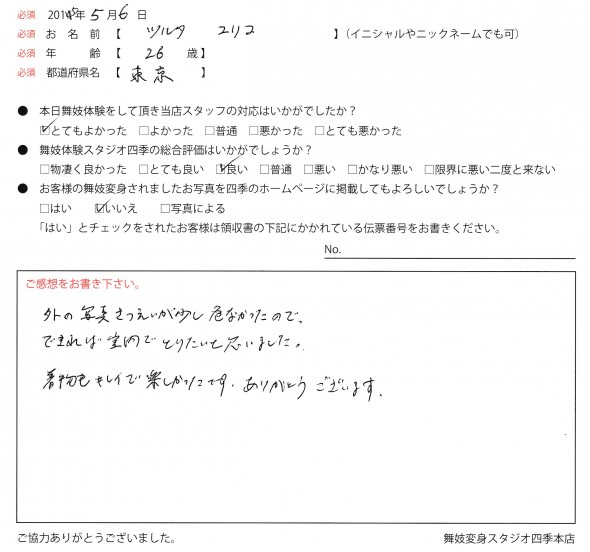 必須 2015年 5月 6日
必須 お 名 前 【 ツルタ ユリコ 】（イニシャルやニックネームでも可）
必須 年 齢 【 26 歳】
必須 都道府県名 【 東京 】
● 本日舞妓体験をして頂き当店スタッフの対応はいかがでしたか？
☑とてもよかった □よかった □普通 □悪かった □とても悪かった
● 舞妓体験スタジオ四季の総合評価はいかがでしょうか？
□物凄く良かった □とても良い ☑良い □普通 □悪い □かなり悪い □限界に悪い二度と来ない
● お客様の舞妓変身されましたお写真を四季のホームページに掲載してもよろしいでしょうか？
□はい ☑いいえ □写真による
「はい」とチェックをされたお客様は領収書の下記にかかれている伝票番号をお書きください。
No.
ご感想をお書き下さい。
外の写真さつえいが少し危なかったので、
できれば室内でとりたいと思いました。
着物もキレイで楽しかったです。ありがとうございます。
ご協力ありがとうございました。 舞妓変身スタジオ四季本店